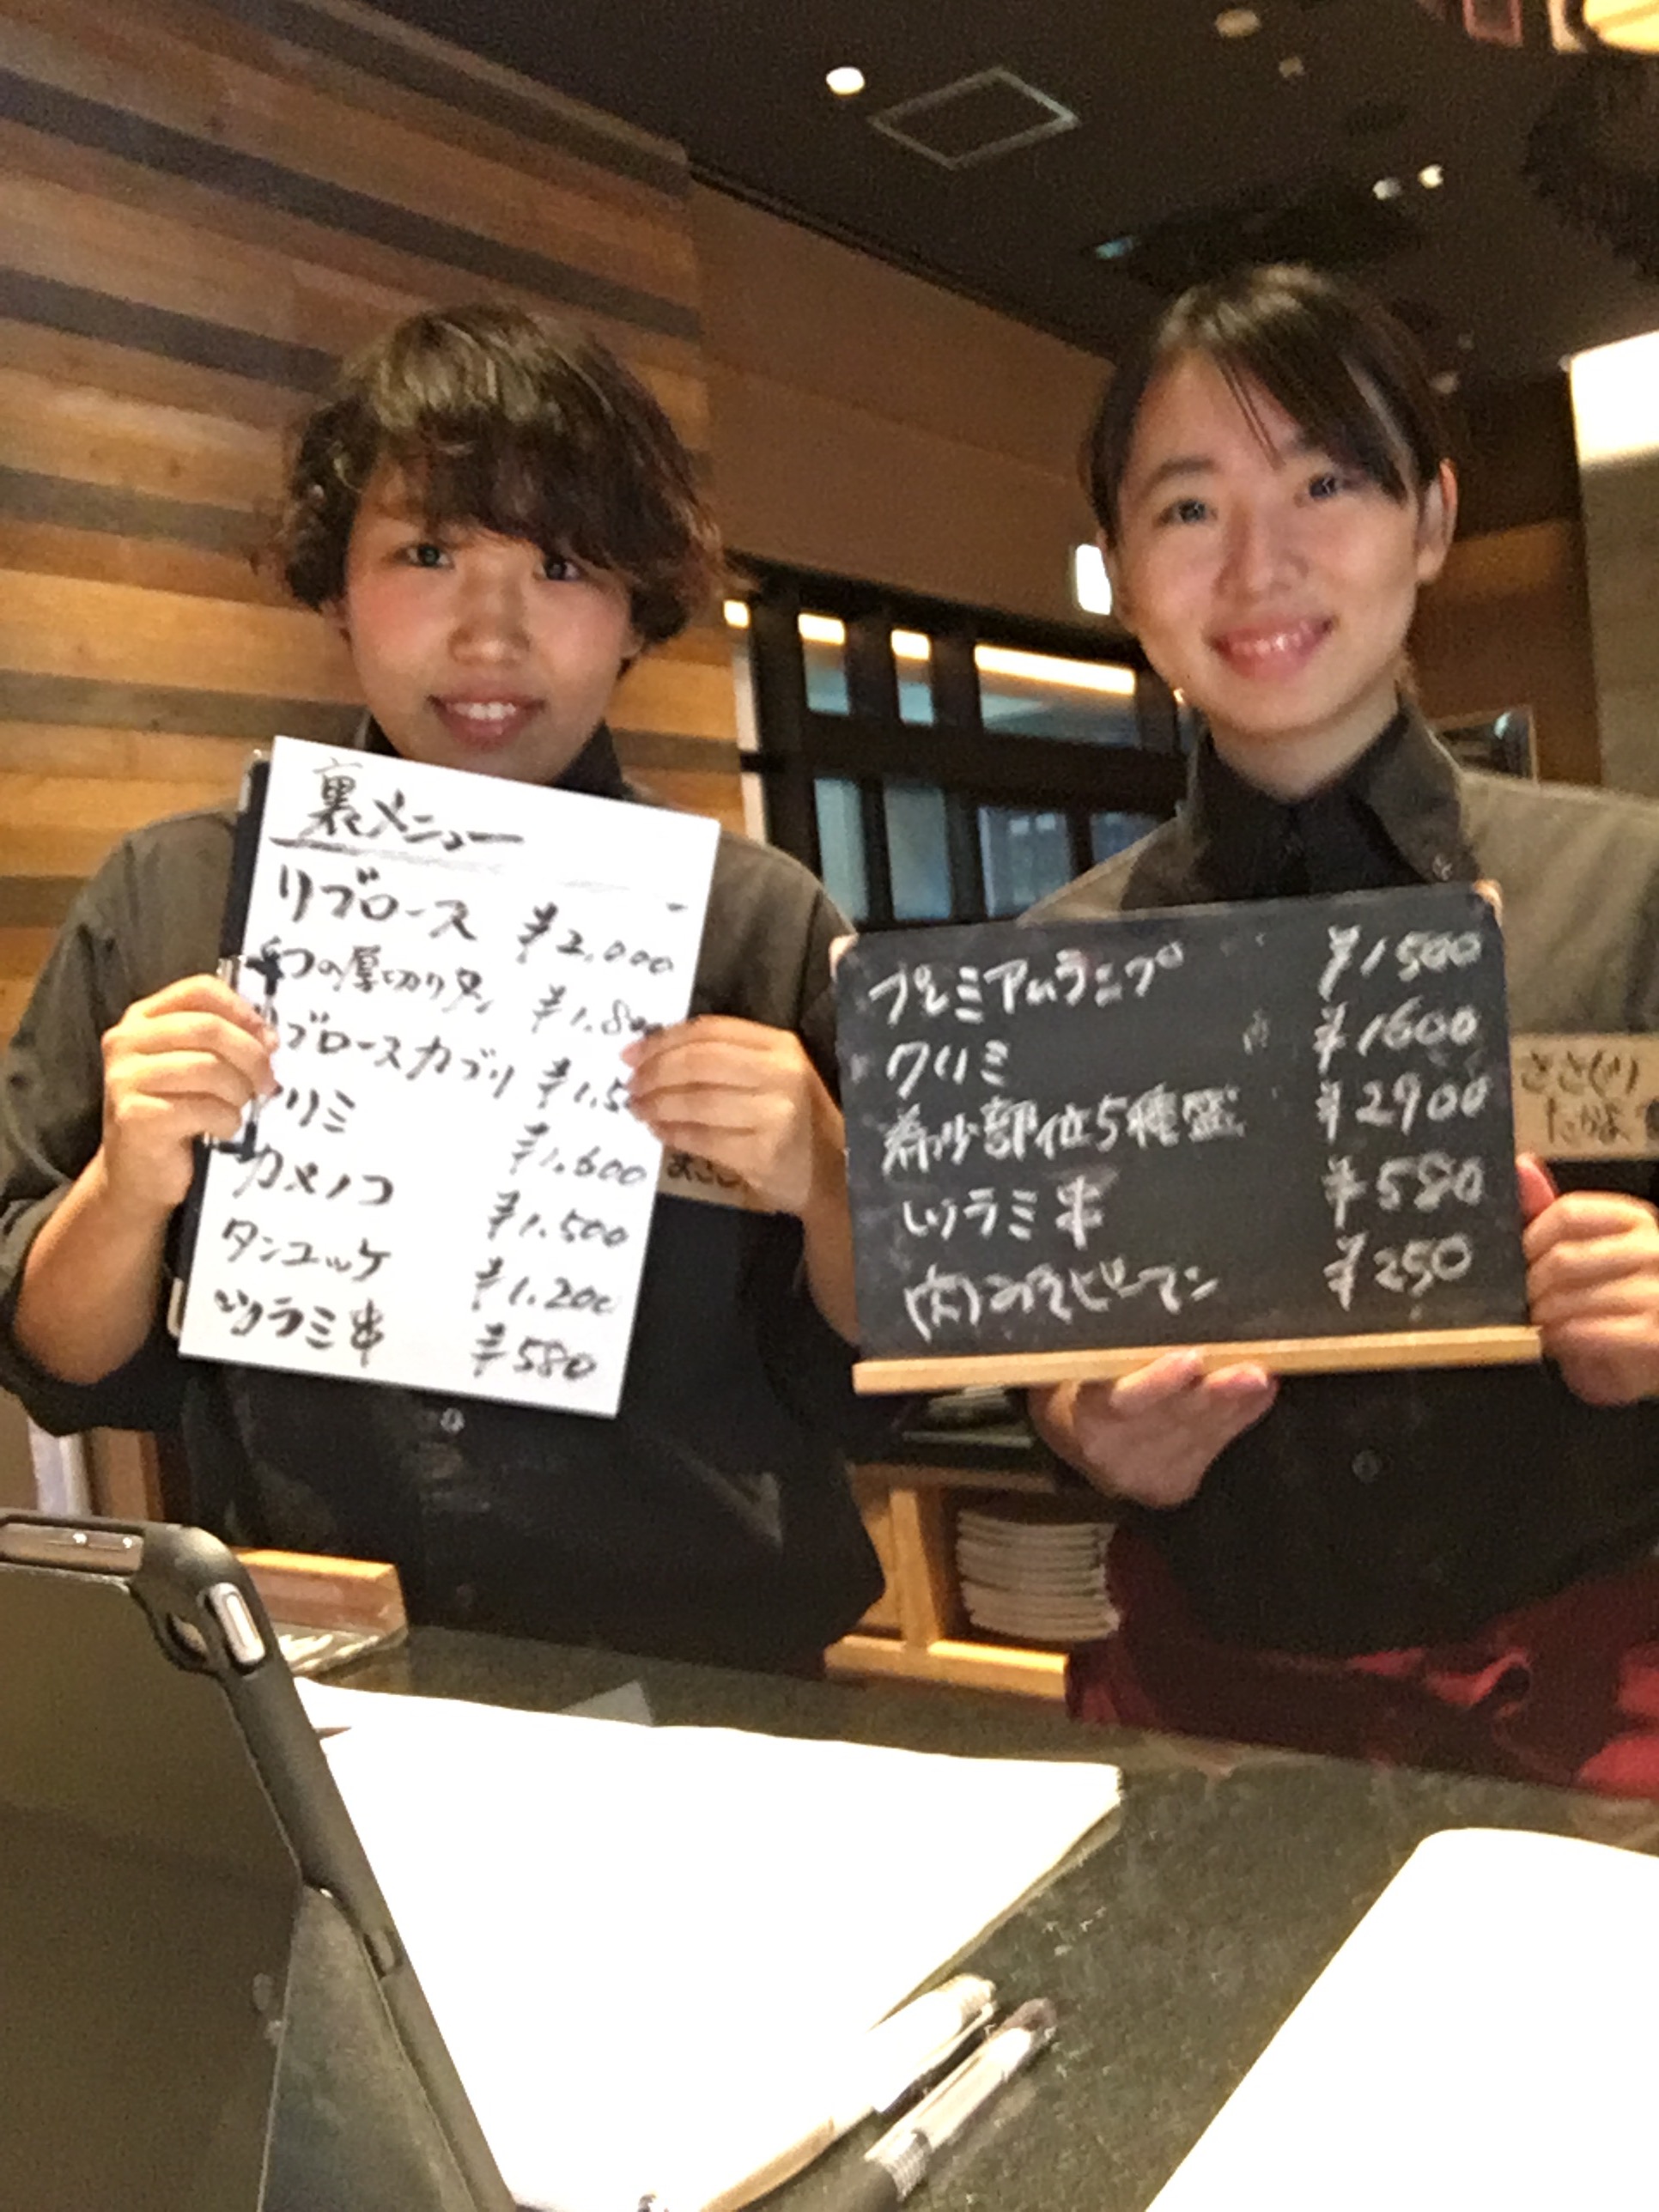 裏メニュー
リブロース ¥2,000
幻の厚切りタン ¥1.80
リブロースカブリ ¥1.5
クリミ ¥1.600
カメノコ ¥1.500
タンユッケ ¥1.200
ツラミ串 ¥580
プレミアムランプ ¥1500
クリミ ¥1600
希少部位5種盛 ¥2900
ツラミ串 ¥580
(大)みそピーマン ¥250
ささぐり